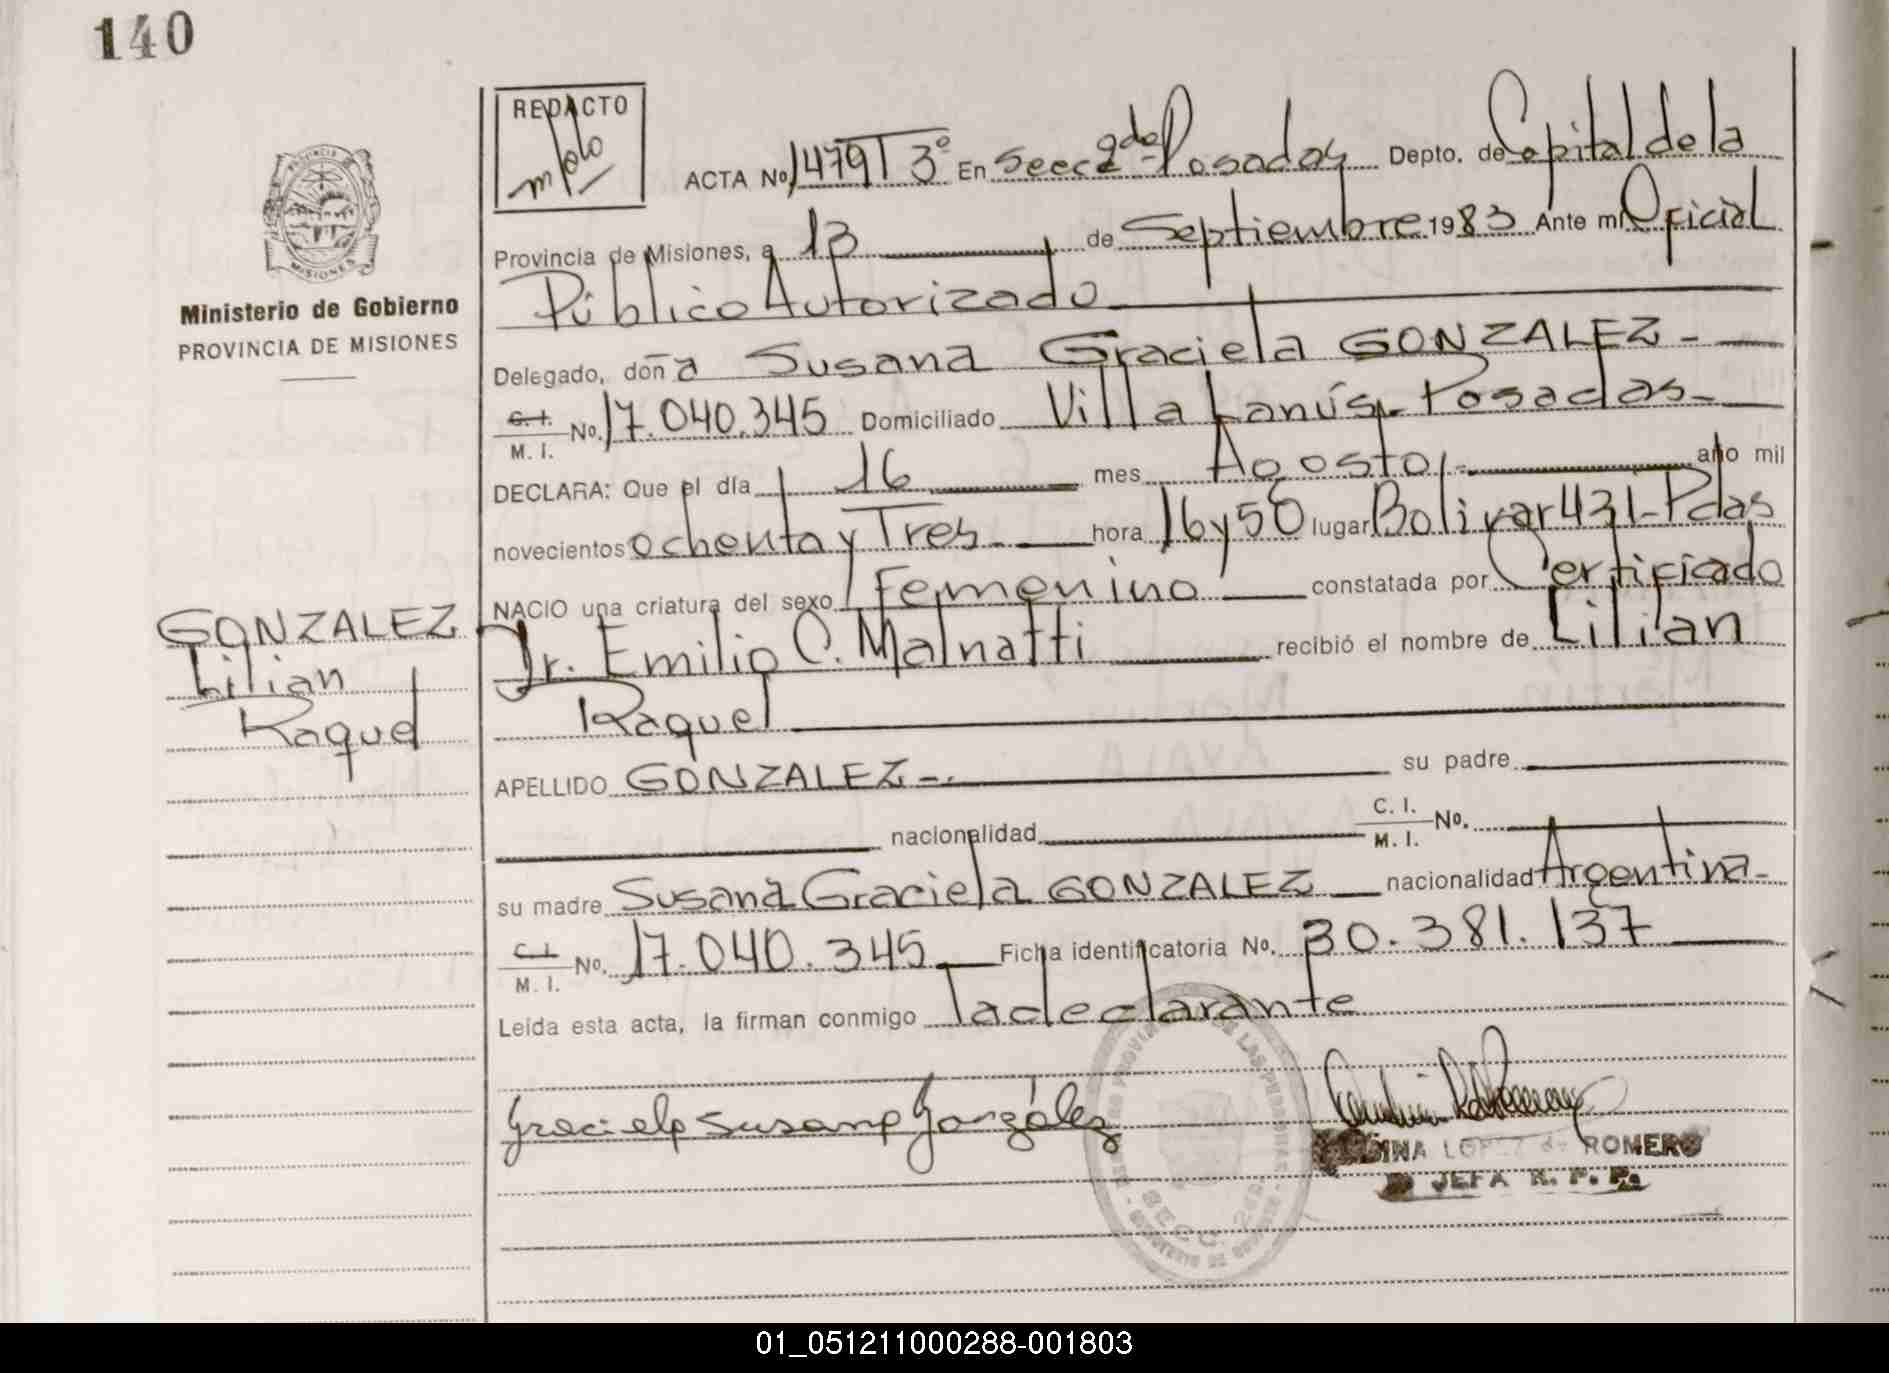 140
REDACTO
ACTA No 1479 T 3º En Secc 2da Posadas Depto. de Capital de la
Provincia de Misiones, a 13 de Septiembre 1983 Ante mi Oficial
Público Autorizado
PROVINCIA DE
MISIONES
Ministerio de Gobierno
PROVINCIA DE MISIONES
Delegado, doña Susana Graciela GONZALEZ-
C. I.
M. I.
No. 17.040.345 Domiciliado Villa Lanús- Posadas-
DECLARA: Que el día 16 mes Agosto.- año mil
novecientos ochenta y Tres hora 16 y 50 lugar Bolivar 431-Pdas
NACIO una criatura del sexo Femenino constatada por Certificado
Dr. Emilio C. Malnatti recibió el nombre de Lilian
Raquel
GONZALEZ
Lilian
Raquel
APELLIDO GONZALEZ-. su padre
nacionalidad C. I.
M. I. No.
su madre Susana Graciela GONZALEZ nacionalidad Argentina-
C. I.
M. I.
No. 17.040.345 Ficha identificatoria No. 30.381.137
Leída esta acta, la firman conmigo la declarante
Graciela Susana González
INA LOPEZ de ROMERO
JEFA R. P. P.
DE LAS PERSONAS
SECC. 2da
01_051211000288-001803